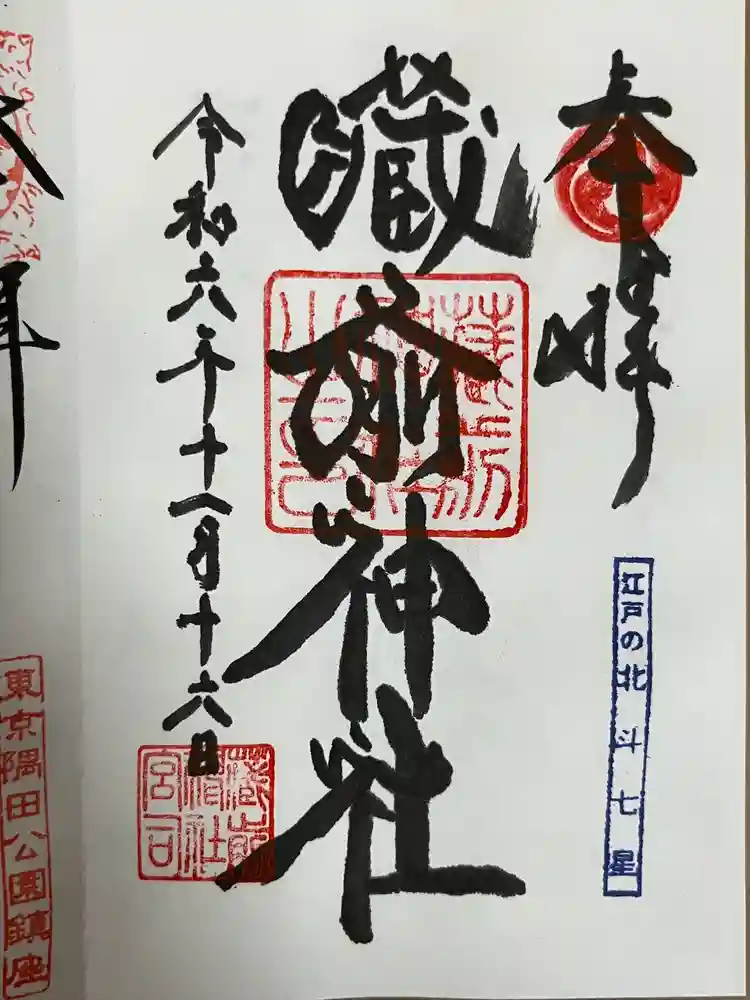 奉拝
江戸の北斗七星
蔵前神社
令和六年十一月十六日
蔵前神社宮司
東京隅田公園鎮座